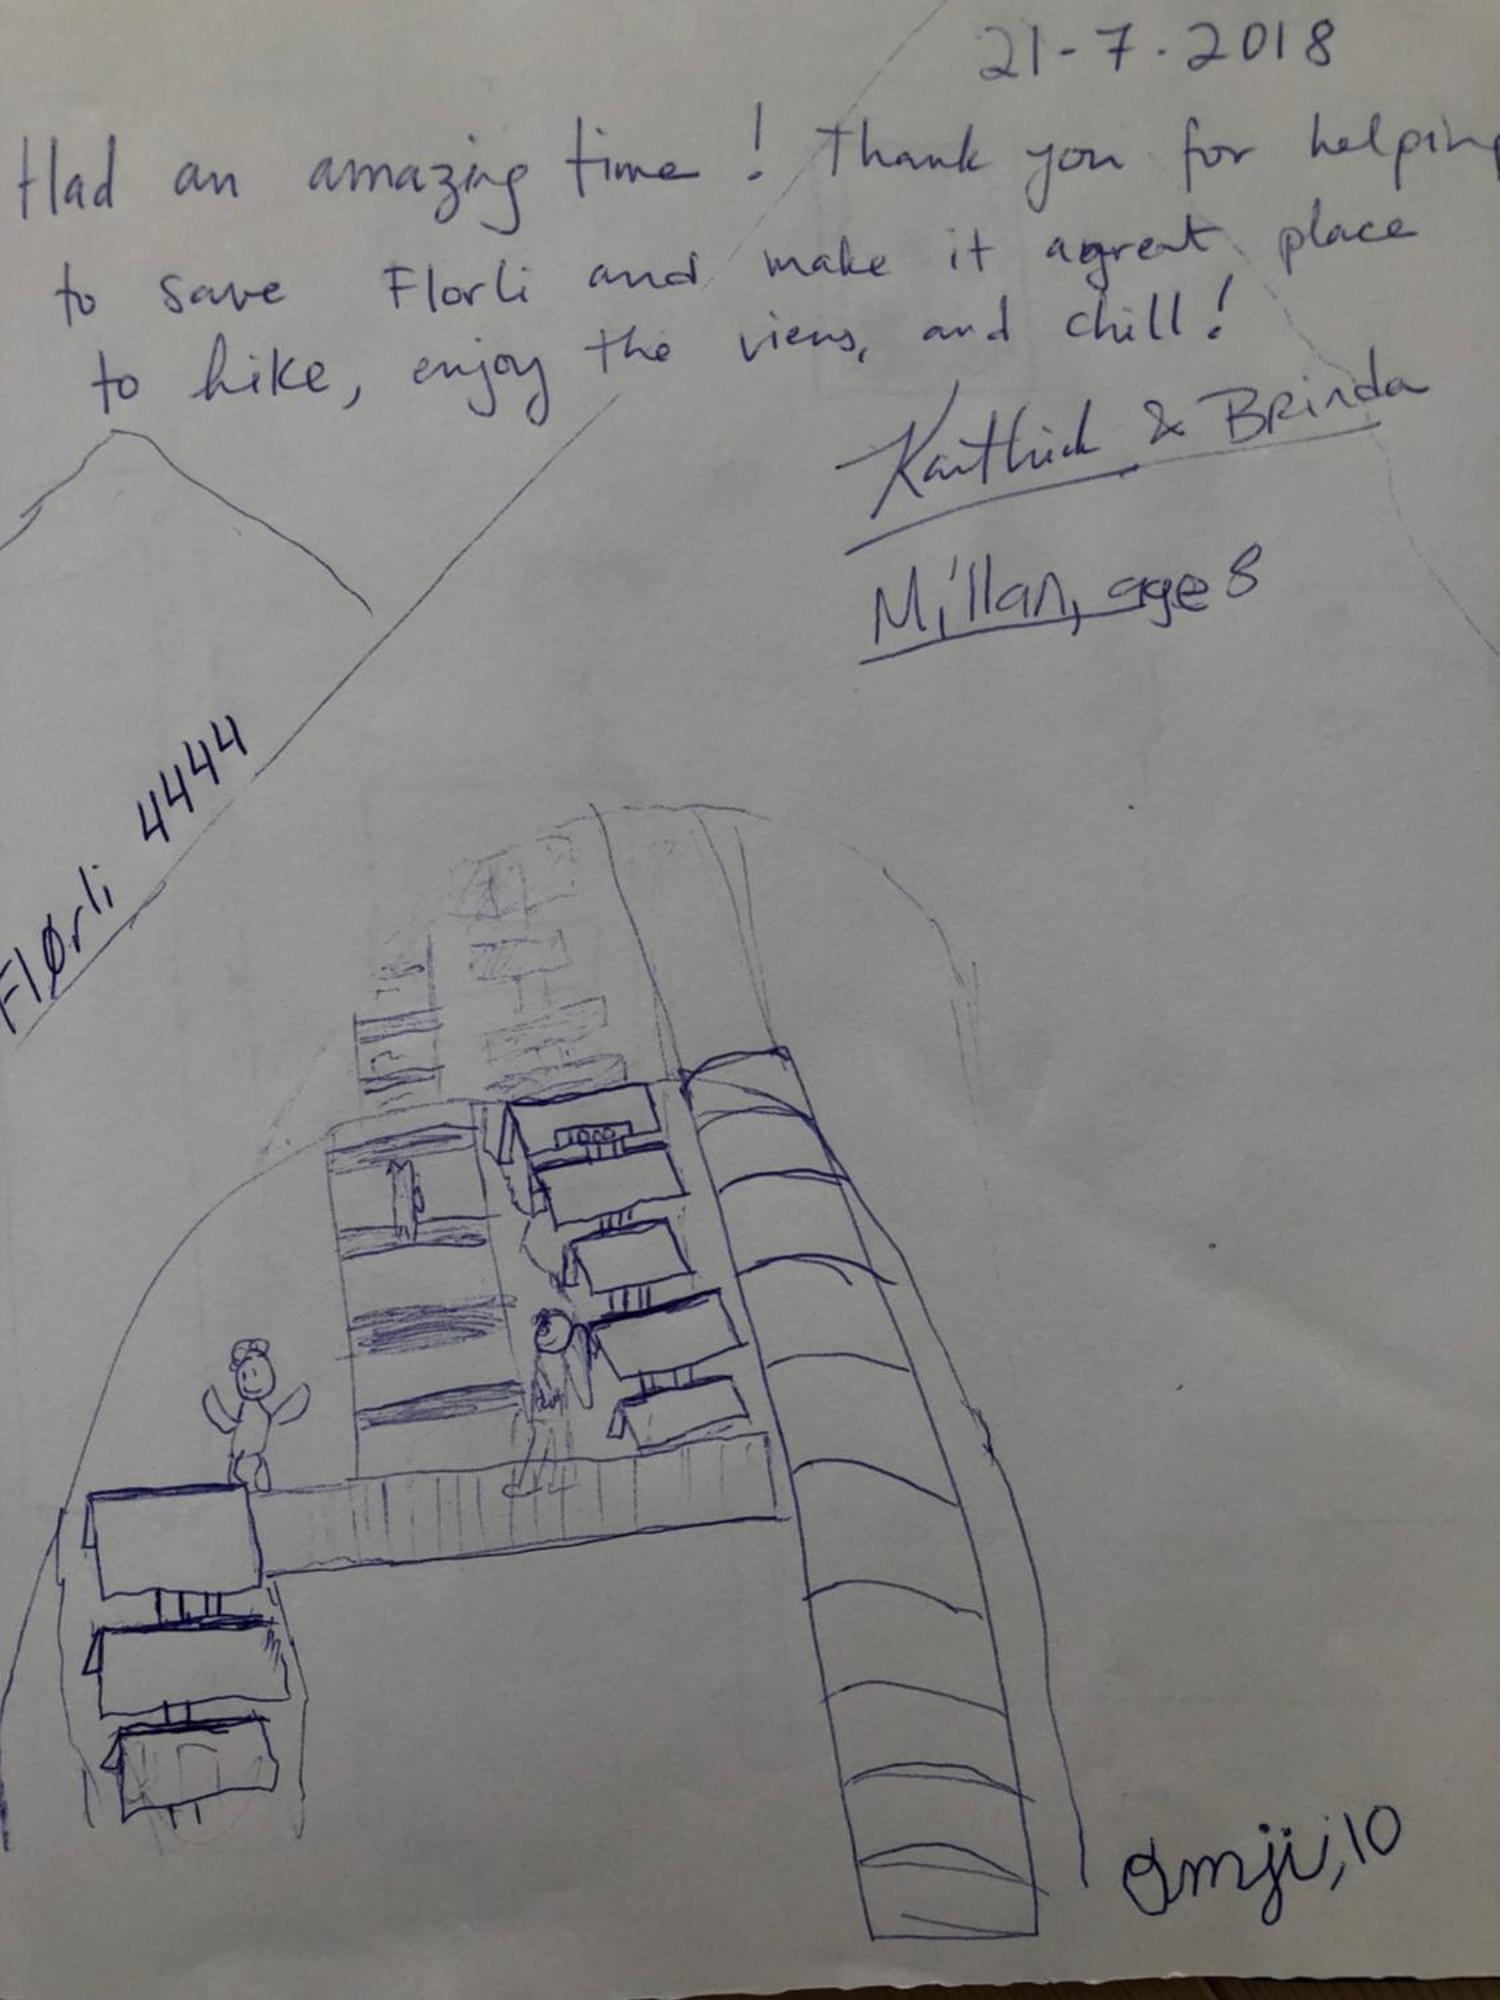 21-7.2018
Had an amazing time! Thank you for helping
to save Florli and make it a great place
to hike, enjoy the views, and chill!
Karthick & Brinda
Millan, age 8
Flørli 4444
Omji, 10